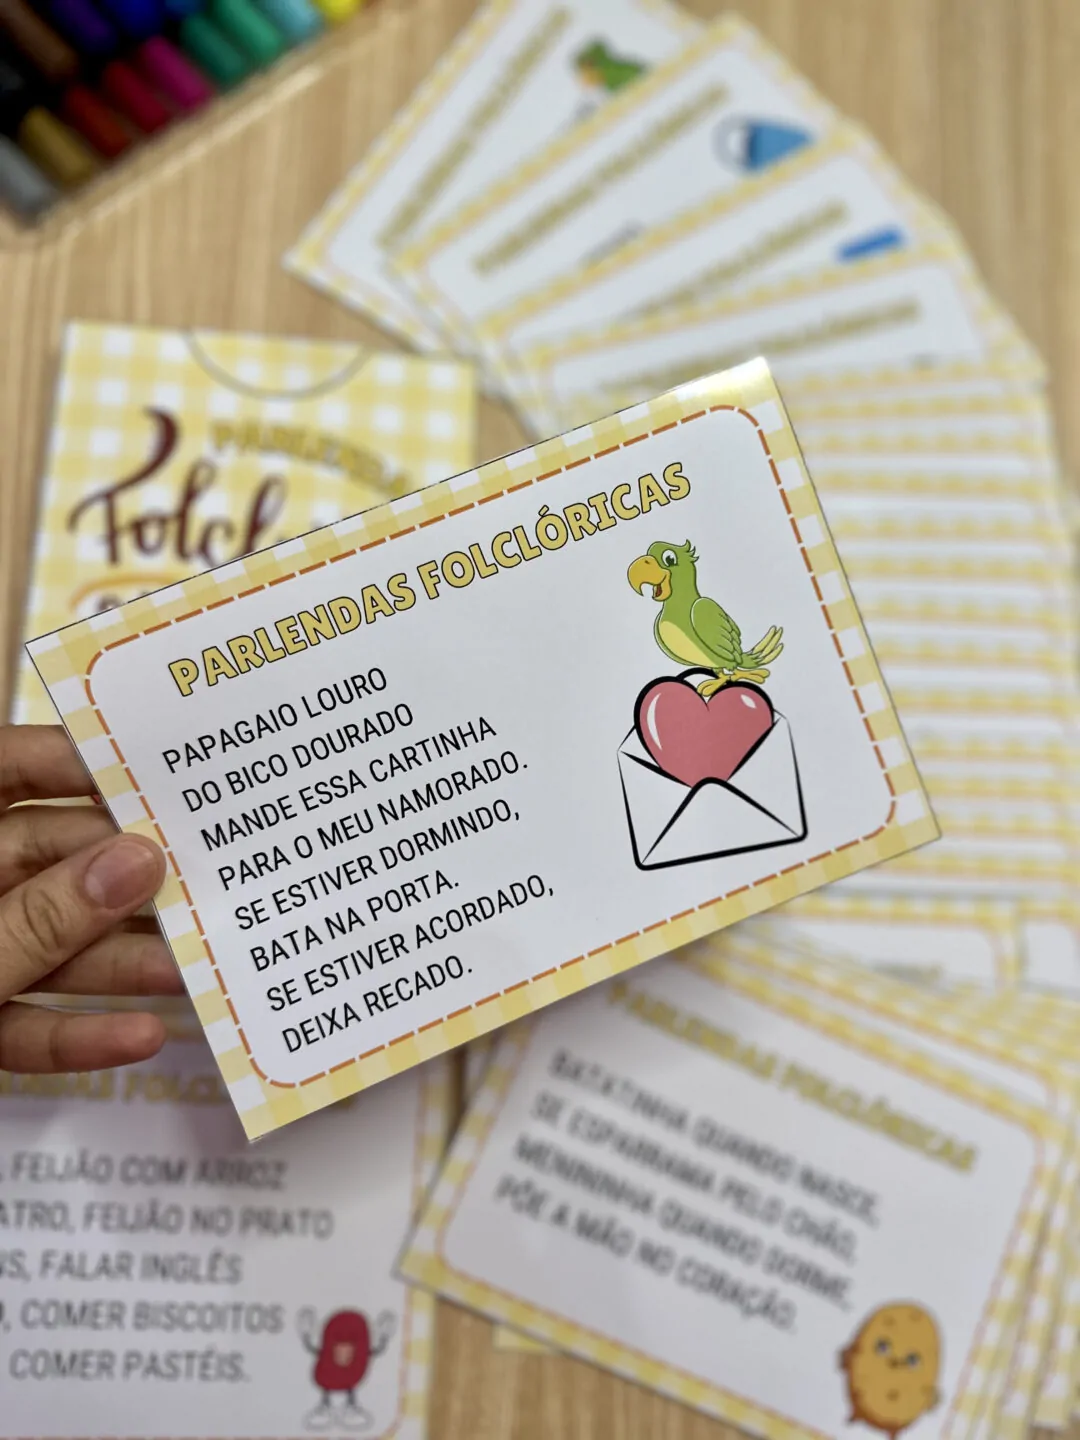 PARLENDAS
Folcl
PARLENDAS FOLCLÓRICAS
PAPAGAIO LOURO
DO BICO DOURADO
MANDE ESSA CARTINHA
PARA O MEU NAMORADO.
SE ESTIVER DORMINDO,
BATA NA PORTA.
SE ESTIVER ACORDADO,
DEIXA RECADO.
FEIJÃO COM ARROZ
ATRO, FEIJÃO NO PRATO
IS, FALAR INGLÊS
, COMER BISCOITOS
COMER PASTÉIS.
PARLENDAS FOLCLÓRICAS
BATATINHA QUANDO NASCE,
SE ESPARRAMA PELO CHÃO,
MENININHA QUANDO DORME,
PÕE A MÃO NO CORAÇÃO.